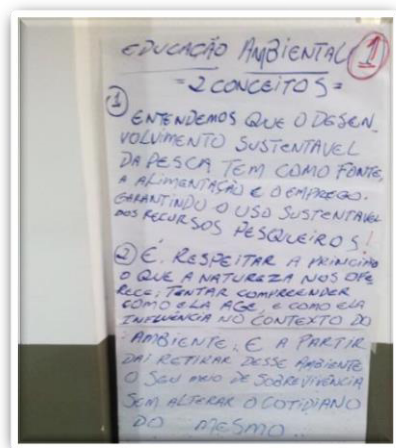 EDUCAÇÃO AMBIENTAL 1
= 2 CONCEITOS =
① ENTENDEMOS QUE O DESEN-
VOLVIMENTO SUSTENTÁVEL
DA PESCA TEM COMO FONTE,
A ALIMENTAÇÃO E O EMPREGO.
GARANTINDO O USO SUSTENTAVEL
DOS RECURSOS PESQUEIROS!
② É. RESPEITAR A PRINCIPIO
O QUE A NATUREZA NOS OFE
RECE; TENTAR COMPREENDER
COMO ELA AGE, E COMO ELA
INFLUÊNCIA NO CONTEXTO DO
AMBIENTE; E A PARTIR
DAÍ RETIRAR DESSE AMBIENTE
O SEU MEIO DE SOBREVIVÊNCIA
SEM ALTERAR O COTIDIANO
DO MESMO.